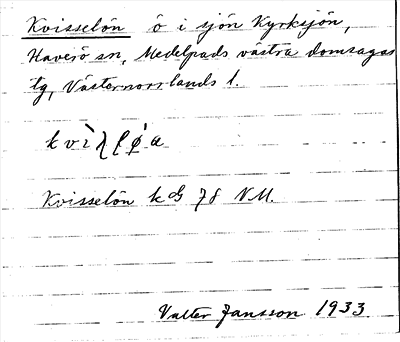 Kvisselön ö i sjön Kyrksjön,
Haverö sn, Medelpads västra domsagas
tg, Västernorrlands l.
Kvisselön k bl 78 NM.
Valter Jansson 1933